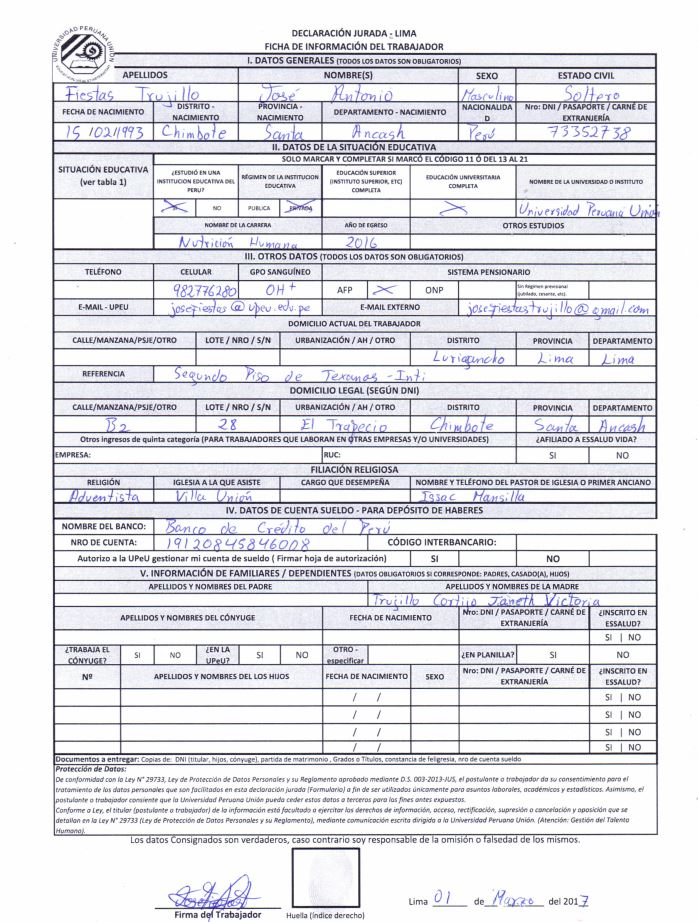 UNIVERSIDAD PERUANA UNIÓN
DECLARACIÓN JURADA - LIMA
FICHA DE INFORMACIÓN DEL TRABAJADOR
I. DATOS GENERALES (TODOS LOS DATOS SON OBLIGATORIOS)
APELLIDOS NOMBRE(S) SEXO ESTADO CIVIL
Fiestas Trujillo José Antonio Masculino Soltero
FECHA DE NACIMIENTO DISTRITO - NACIMIENTO PROVINCIA - NACIMIENTO DEPARTAMENTO - NACIMIENTO NACIONALIDAD Nro: DNI / PASAPORTE / CARNÉ DE EXTRANJERÍA
15/02/1993 Chimbote Santa Ancash Perú 73352738
II. DATOS DE LA SITUACIÓN EDUCATIVA
SOLO MARCAR Y COMPLETAR SI MARCÓ EL CÓDIGO 11 Ó DEL 13 AL 21
SITUACIÓN EDUCATIVA (ver tabla 1) ¿ESTUDIÓ EN UNA INSTITUCION EDUCATIVA DEL PERU? RÉGIMEN DE LA INSTITUCION EDUCATIVA EDUCACIÓN SUPERIOR (INSTITUTO SUPERIOR, ETC) COMPLETA EDUCACIÓN UNIVERSITARIA COMPLETA NOMBRE DE LA UNIVERSIDAD O INSTITUTO
SI NO PUBLICA PRIVADA Universidad Peruana Unión
NOMBRE DE LA CARRERA AÑO DE EGRESO OTROS ESTUDIOS
Nutrición Humana 2016
III. OTROS DATOS (TODOS LOS DATOS SON OBLIGATORIOS)
TELÉFONO CELULAR GPO SANGUÍNEO SISTEMA PENSIONARIO
982776280 OH+ AFP ONP Sin Régimen previsional (jubilado, cesante, etc).
E-MAIL - UPEU josefiestas@upeu.edu.pe E-MAIL EXTERNO josefiestastrujillo@gmail.com
DOMICILIO ACTUAL DEL TRABAJADOR
CALLE/MANZANA/PSJE/OTRO LOTE / NRO / S/N URBANIZACIÓN / AH / OTRO DISTRITO PROVINCIA DEPARTAMENTO
Lurigancho Lima Lima
REFERENCIA Segundo Piso de Texanos - Inti
DOMICILIO LEGAL (SEGÚN DNI)
CALLE/MANZANA/PSJE/OTRO LOTE / NRO / S/N URBANIZACIÓN / AH / OTRO DISTRITO PROVINCIA DEPARTAMENTO
B2 28 El Trapecio Chimbote Santa Ancash
Otros ingresos de quinta categoría (PARA TRABAJADORES QUE LABORAN EN OTRAS EMPRESAS Y/O UNIVERSIDADES) ¿AFILIADO A ESSALUD VIDA?
EMPRESA: RUC: SI NO
FILIACIÓN RELIGIOSA
RELIGIÓN IGLESIA A LA QUE ASISTE CARGO QUE DESEMPEÑA NOMBRE Y TELÉFONO DEL PASTOR DE IGLESIA O PRIMER ANCIANO
Adventista Villa Unión Issac Mansilla
IV. DATOS DE CUENTA SUELDO - PARA DEPÓSITO DE HABERES
NOMBRE DEL BANCO: Banco de Crédito del Perú
NRO DE CUENTA: 19120845846008 CÓDIGO INTERBANCARIO:
Autorizo a la UPeU gestionar mi cuenta de sueldo ( Firmar hoja de autorización) SI NO
V. INFORMACIÓN DE FAMILIARES / DEPENDIENTES (DATOS OBLIGATORIOS SI CORRESPONDE: PADRES, CASADO(A), HIJOS)
APELLIDOS Y NOMBRES DEL PADRE APELLIDOS Y NOMBRES DE LA MADRE
Trujillo Cortijo Janeth Victoria
APELLIDOS Y NOMBRES DEL CÓNYUGE FECHA DE NACIMIENTO Nro: DNI / PASAPORTE / CARNÉ DE EXTRANJERÍA ¿INSCRITO EN ESSALUD?
SI | NO
¿TRABAJA EL CÓNYUGE? SI NO ¿EN LA UPeU? SI NO OTRO - especificar ¿EN PLANILLA? SI NO
Nº APELLIDOS Y NOMBRES DEL LOS HIJOS FECHA DE NACIMIENTO SEXO Nro: DNI / PASAPORTE / CARNÉ DE EXTRANJERÍA ¿INSCRITO EN ESSALUD?
/ / SI | NO
/ / SI | NO
/ / SI | NO
/ / SI | NO
Documentos a entregar: Copias de: DNI (titular, hijos, cónyuge), partida de matrimonio , Grados o Títulos, constancia de feligresia, nro de cuenta sueldo
Protección de Datos:
De conformidad con la Ley N° 29733, Ley de Protección de Datos Personales y su Reglamento aprobado mediante D.S. 003-2013-JUS, el postulante o trabajador da su consentimiento para el
tratamiento de los datos personales que son facilitados en esta declaración jurada (Formulario) a fin de ser utilizados únicamente para asuntos laborales, académicos y estadísticos. Asimismo, el
postulante o trabajador consiente que la Universidad Peruana Unión pueda ceder estos datos a terceros para los fines antes expuestos.
Conforme a Ley, el titular (postulante o trabajador) de la información está facultado a ejercitar los derechos de información, acceso, rectificación, supresión o cancelación y oposición que se
detallan en la Ley N° 29733 (Ley de Protección de Datos Personales y su Reglamento), mediante comunicación escrita dirigida a la Universidad Peruana Unión. (Atención: Gestión del Talento
Humano).
Los datos Consignados son verdaderos, caso contrario soy responsable de la omisión o falsedad de los mismos.
Lima 01 de Marzo del 2017
Firma del Trabajador Huella (índice derecho)